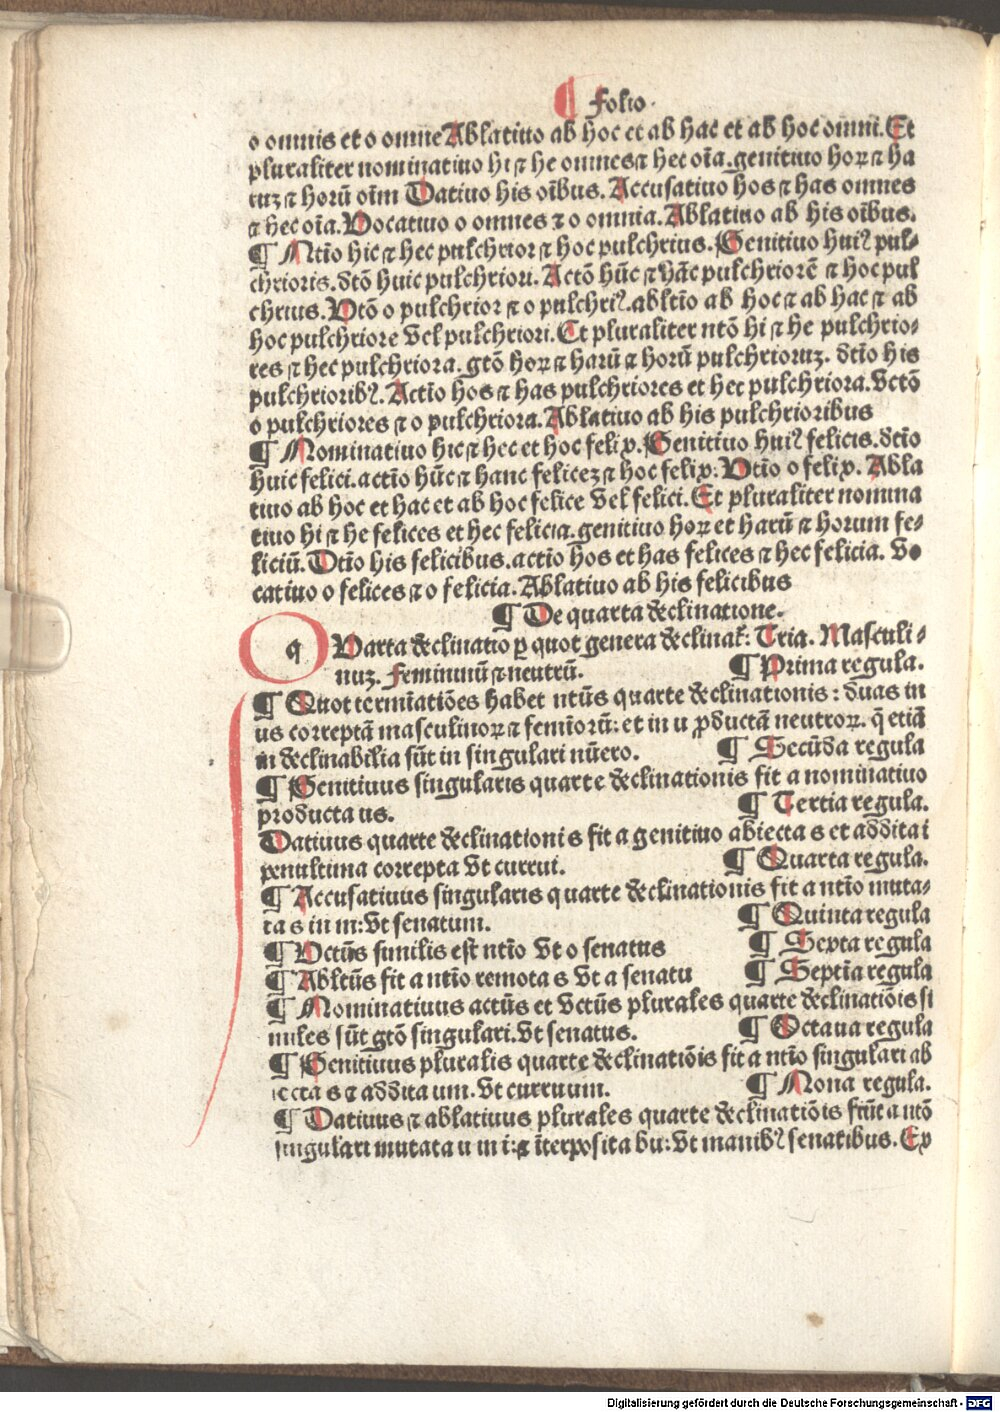 ¶ Folio.
o omnis et o omne Ablatiuo ab hoc et ab hac et ab hoc omni. Et
pluraliter nominatiuo hi ⁊ he omnes ⁊ hec oı̄a. genitiuo hoꝝ ⁊ ha
ruꝫ ⁊ horū oīm Datiuo his oı̄bus. Accusatiuo hos ⁊ has omnes
⁊ hec oı̄a. Vocatiuo o omnes ⁊ o omnia. Ablatiuo ab his oı̄bus.
¶ Ntīo hic ⁊ hec pulchrior ⁊ hoc pulchrius. Genitiuo huiꝰ pul⸗
chrioris. dtō huic pulchriori. Actō hūc ⁊ hāc pulchriorē ⁊ hoc pul
chrius. Vtō o pulchrior ⁊ o pulchriꝰ. abltīo ab hoc ⁊ ab hac ⁊ ab
hoc pulchriore vel pulchriori. Et pluraliter ntō hi ⁊ he pulchrio⸗
res ⁊ hec pulchriora. gtō hoꝝ ⁊ harū ⁊ horū pulchrioruꝫ. dtīo his
pulchrioribꝰ. Actīo hos ⁊ has pulchriores et hec pulchriora. vctō
o pulchriiores ⁊ o pulchriora. Ablatiuo ab his pulchrioribus
¶ Nominatiuo hic ⁊ hec et hoc felix. Genitiuo huiꝰ felicis. dctīo
huic felici. actīo hūc ⁊ hanc feliceꝫ ⁊ hoc felix: Vtīo o felix. Abla
tiuo ab hoc et hac et ab hoc felice vel felici. Et pluraliter nomina
tiuo hi ⁊ he felices et hec felicia. genitiuo hoꝝ et harū ⁊ horum fe⸗
liciū. Dtīo his felicibus. actīo hos et has felices ⁊ hec felicia. Vo
catiuo o felices ⁊ o felicia. Ablatiuo ab his felicibus
¶ De quarta declinatione.
q Varta declinatio ꝑ quot genera declinat̄: Tria. Masculi⸗
nuꝫ. Femininū ⁊ neutrū. ¶ Prima regula.
¶ Quot termı̄atiōes habet ntūs quarte declinationis: duas in
us correptā masculinoꝝ ⁊ femı̄orū: et in u ꝓductā neutroꝝ. q̄ etiā
in declinabilia sūt in singulari nūero. ¶ Secūda regula
¶ Genitiuus singularis quarte declinationis fit a nominatiuo
producta us. ¶ Tertia regula.
Datiuus quarte declinationis fit a genitiuo abiecta s et addita i
penultima correpta vt currui. ¶ Quarta regula.
¶ Accusatiuus singularis quarte declinationis fit a ntīo muta⸗
ta s in m: vt senatum. ¶ Quinta regula
¶ Vctūs similis est ntīo vt o senatus ¶ Sexta regula
¶ Abltūs fit a ntīo remota s vt a senatu ¶ Septīa regula
¶ Nominatiuus actūs et vctūs plurales quarte declinatiōis si
miles sūt gtō singulari. vt senatus. ¶ Octaua regula
¶ Genitiuus pluralis quarte declinatiōis fit a ntīo singulari ab
iecta s ⁊ addita um. vt curruum. ¶ Nona regula.
¶ Datiuus ⁊ ablatiuus plurales quarte declinatiōis fiūt a ntō
singulari mutata u in i: ⁊ īterposita bu: vt manibꝰ senatibus. Ex
Digitalisierung gefördert durch die Deutsche Forschungsgemeinschaft - DFG